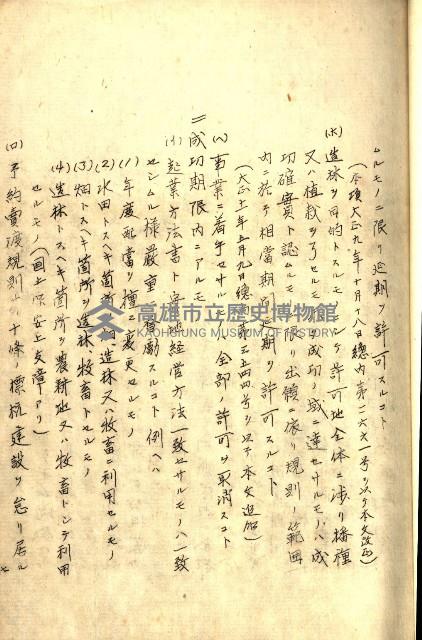 ムルモノニ限リ延期ヲ許可スルコト
(本項大正九年十月十八日總内第二六六一号ヲ以テ本文改正)
(ホ)造林ヲ目的トスルモノニシテ許可地全体ニ渉リ播種
又ハ植栽ヲ了セルモノヲ成功ノ域ニ達セサルモノハ成
功確實ト認ムルモノニ限リ出願ニ依リ規則ノ範囲
内ニ於テ相當期間延期ヲ許可スルコト
(大正十年五月九日總内第 五四四号ヲ以テ本文追加)
(ヘ)事業ニ着手セサルモノ 全部ノ許可ヲ取消スコト
二成功期限内ニアルモノ
(イ)起業方法書ト実際経営方法一致セサルモノハ一致
セシムル様嚴重 督励スルコト例ヘハ
(1)年度配當ヲ擅ニ変更セルモノ
(2)水田トスヘキ箇所ヲ畑、造林又ハ牧畜ニ利用セルモノ
(3)畑トスヘキ箇所ヲ造林、牧畜トセルモノ
(4)造林トスヘキ箇所ヲ農耕地又ハ牧畜トシテ利用
セルモノ(国土保安上支障アリ)
(ロ)予約賣渡規則第十條ノ標杭建設ヲ怠リ居ル
モ
高雄市立歷史博物館
KAOHSIUNG MUSEUM OF HISTORY